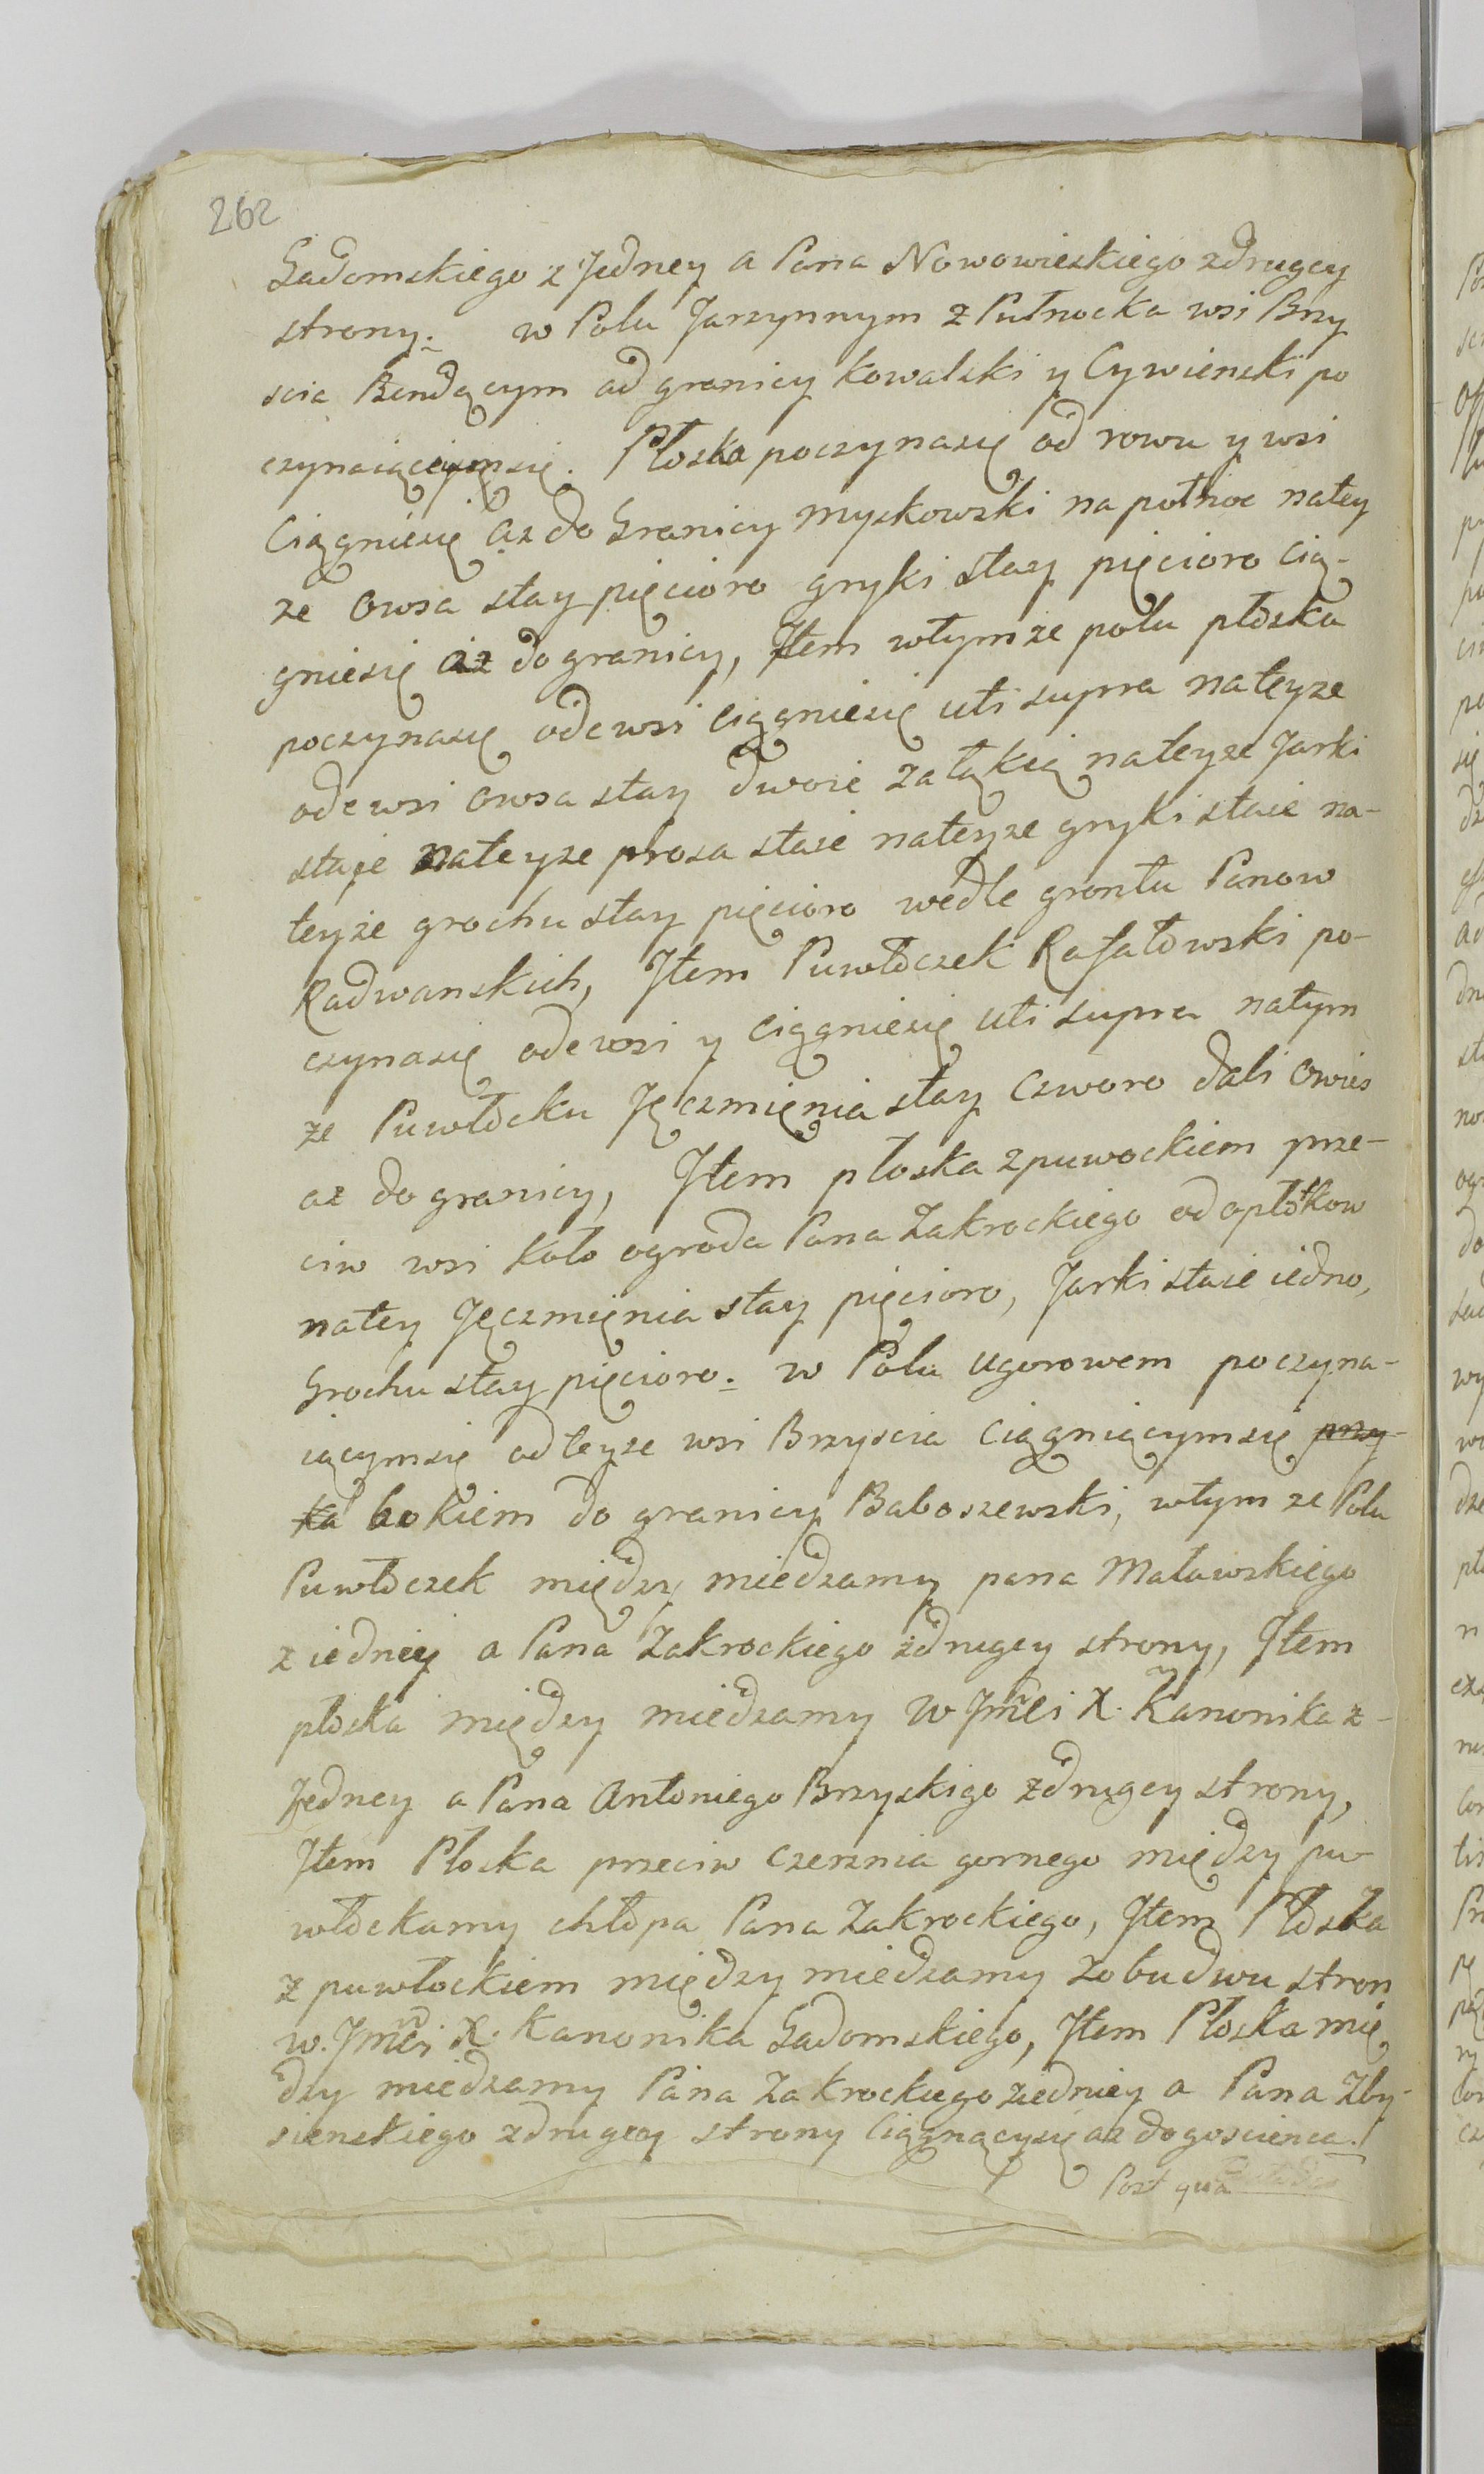 262
Gadomskiego z Jedney a Pana Nowowieskiego zdrugey
strony. w Polu Jarzynnym z Pułnocka wsi Brzy
scia Bendącym od granicy kowalski y Cywienski po
czynaiącym się. Płoska poczynasię od rowu y wsi
Ciągniesię aż do Granicy myskowski na połnoc natey
ze owsa stay pięcioro gryki stay pięcioro cią-
gniesię aż do granicy, Jtem wtymże polu płoska
poczynasię odewsi ciągniesię uti supra nateyze
odewsi owsa stay dwoie załąkią nateyze Jarki
staje nateyze prosa staie nateyze gryki staie na-
teyże grochu stay pięcioro wedle grontu Panow
Radwanskich, Jtem Puwłoczek Rafałowski po-
czynasię odewsi y ciągniesię uti supra natym
ze Puwłocku Jęczmięnia stay czworo dali owies
az do granicy, Jtem płoska z puwockiem prze-
ciw wsi Koło ogroda Pana Zakrockiego od opłotkow
natey Jęczmięnia stay pięcioro, Jarki staie iedno,
Grochu stay pięcioro. w Polu ugorowem poczyna-
iącymsię odteyze wsi Brzyscia Ciągniącymsię przy-
ka bokiem do granicy Baboszewski, wtym ze Polu
Puwłoczek między miedzamy pana Maławskiego
z iedniey a Pana Zakrockiego zdrugey strony, Jtem
płoska między miedzamy W Jmci X. Kanonika z-
Jedney a Pana Antoniego Brzyskigo zdrugey strony,
Jtem Płoska przeciw czerznia gornego między pu-
włockamy chłopa Pana Zakrockiego, Jtem Płoska
z puwłockiem między miedzamy zobudwu stron
w. Jmci X. Kanonika Gadomskiego, Jtem Płoska mię
dzy miedzamy Pana Zakrockiego ziedniey a Pana Zby-
sienskiego zdrugey strony Ciągnącysię az dogoscienca.
Post qua